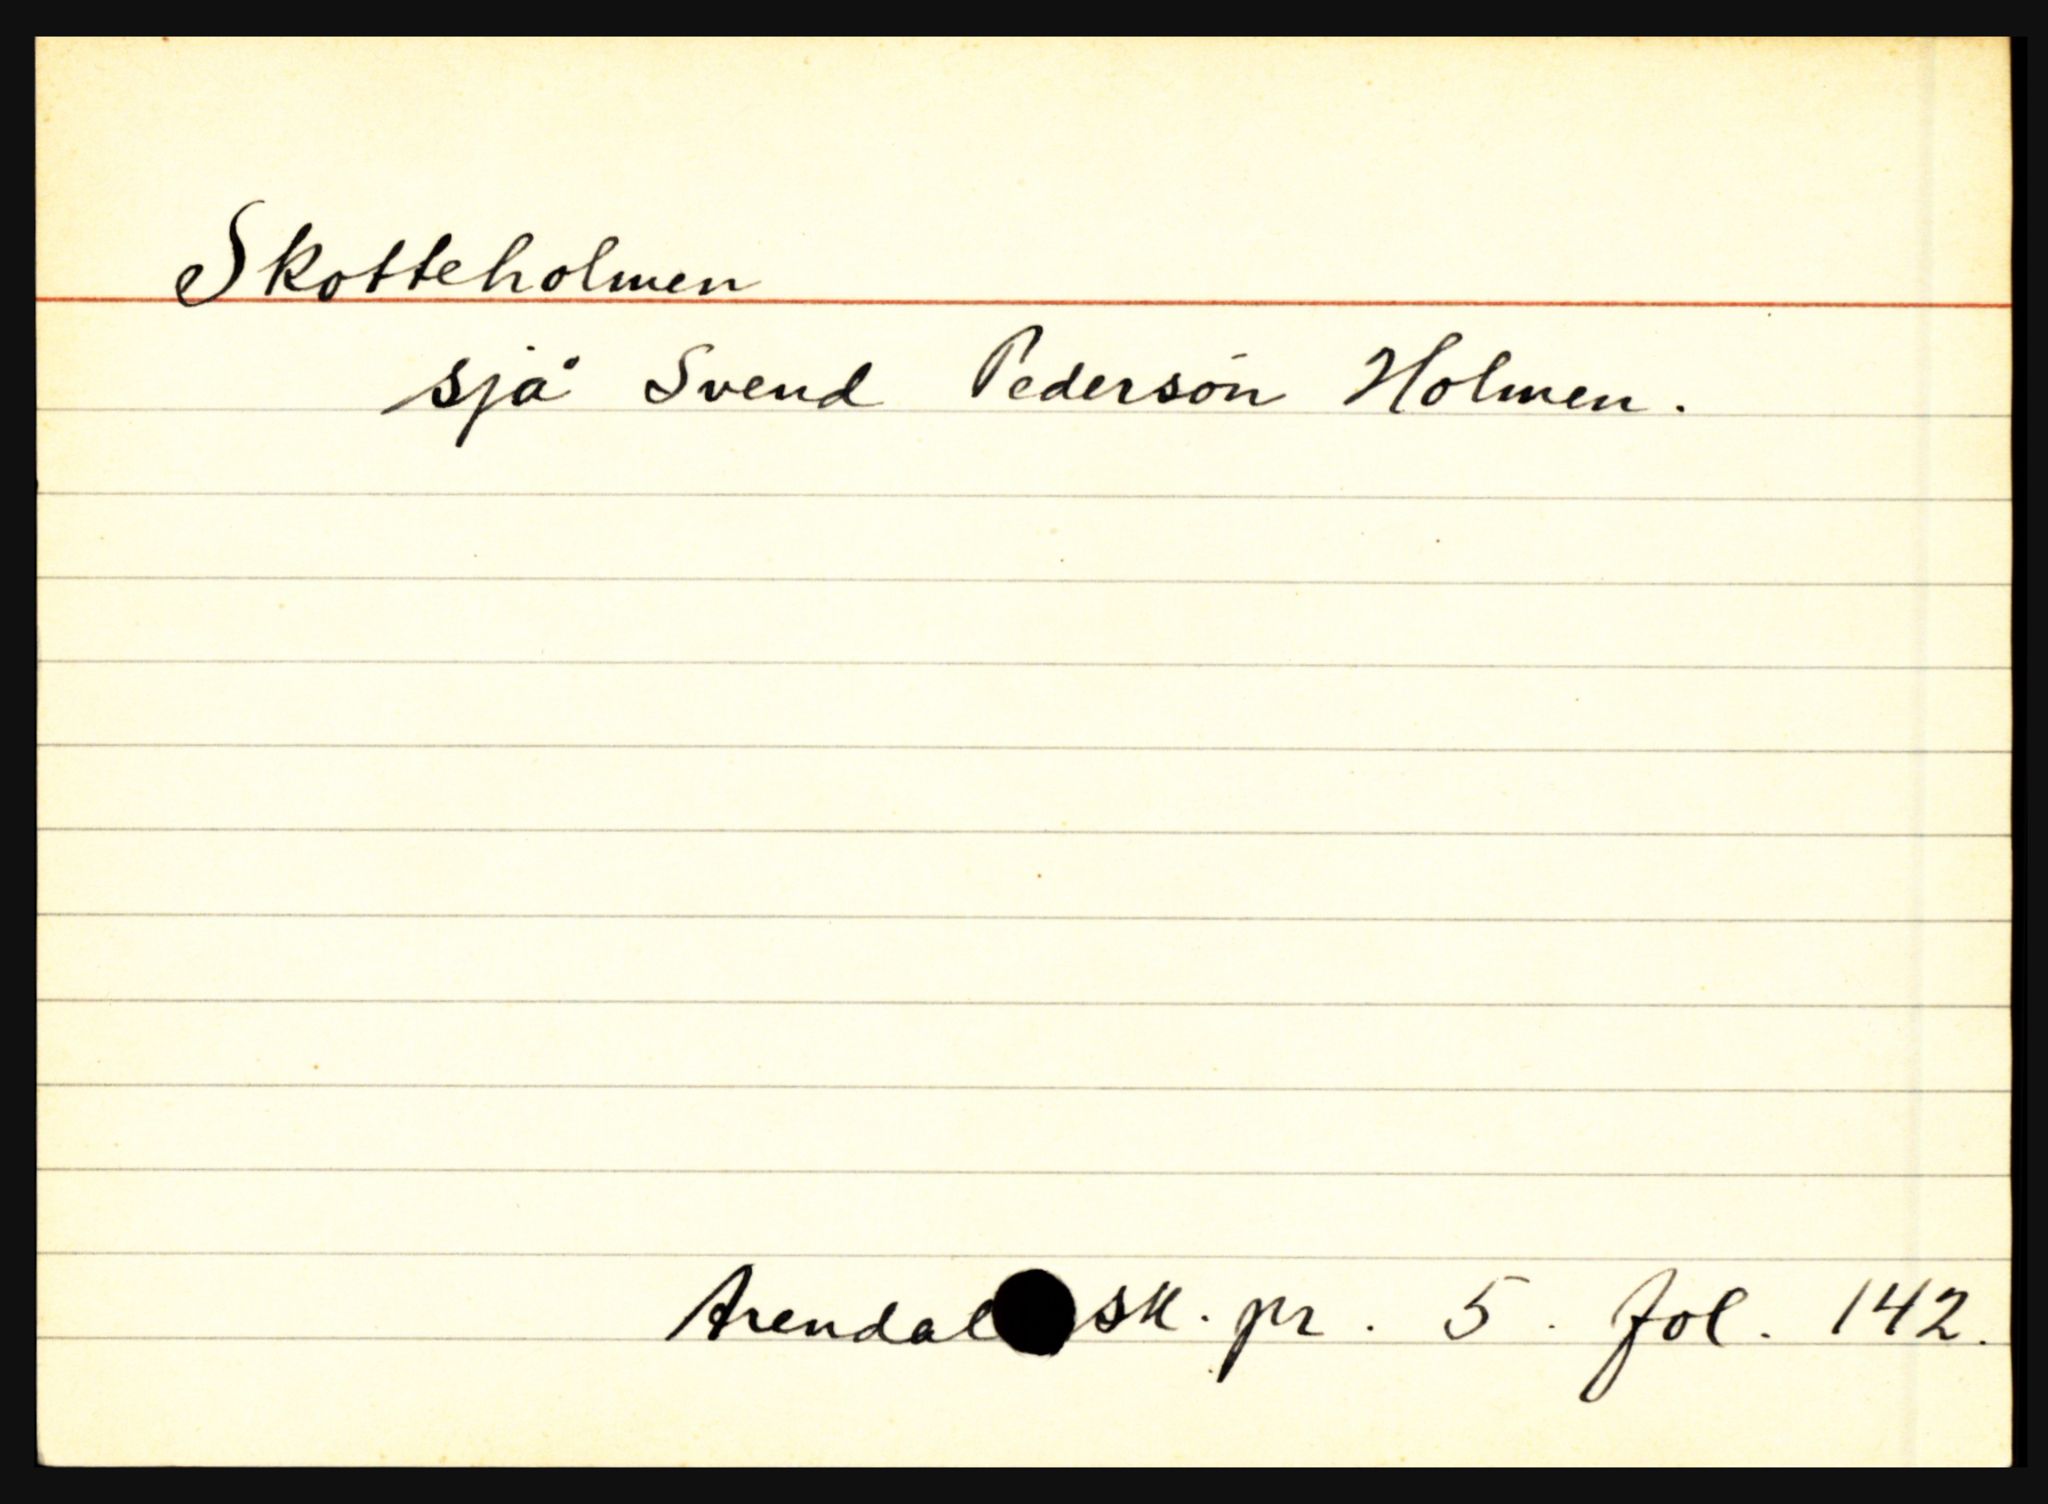 Skotteholmen
sjå Svend Pedersøn Holmen.
Arendal sk. pr. 5. fol. 142.